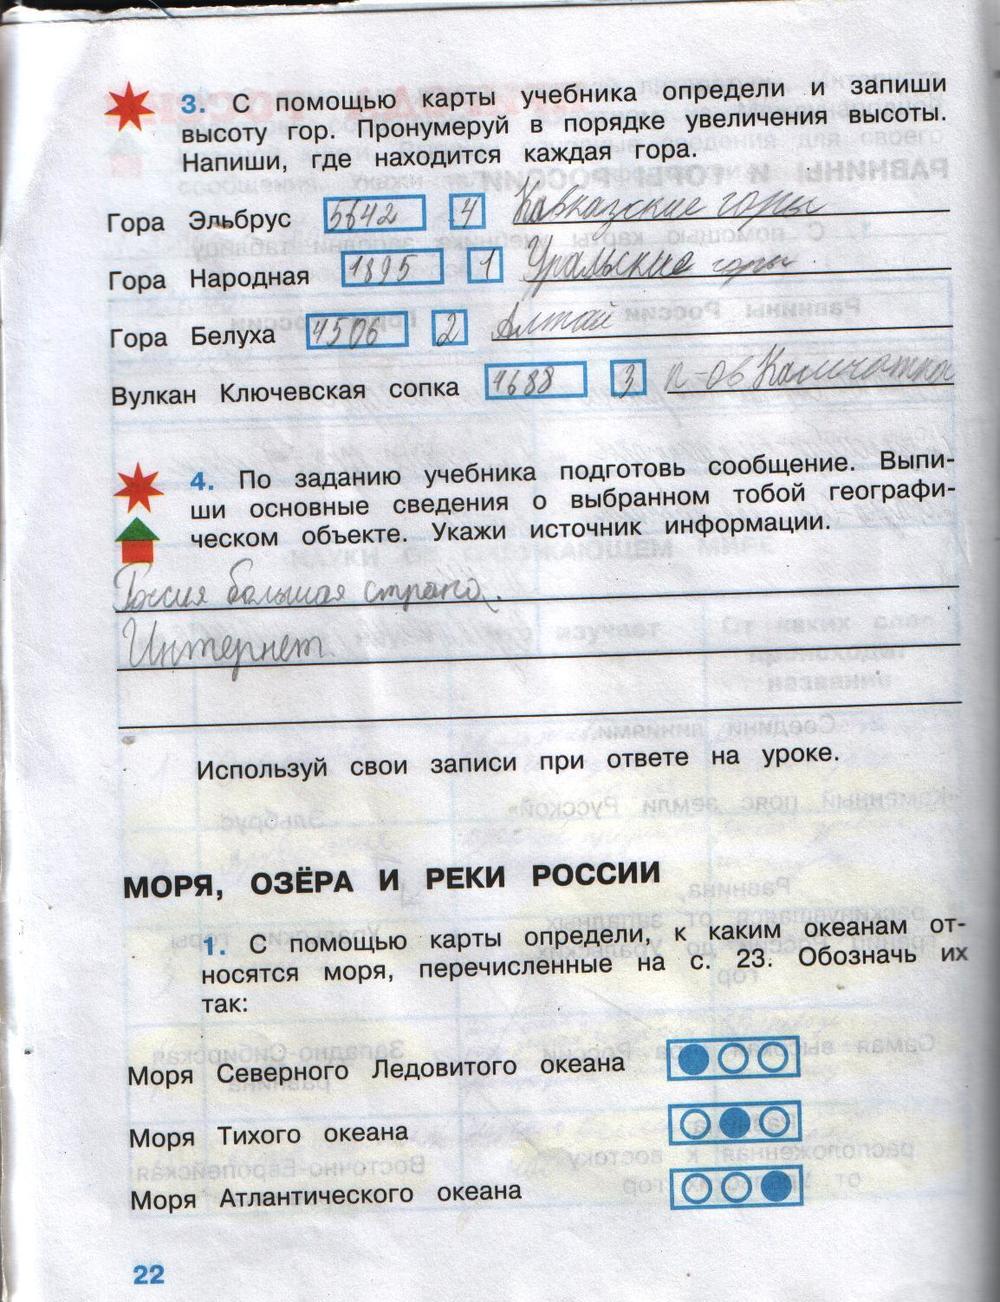 3. С помощью карты учебника определи и запиши
высоту гор. Пронумеруй в порядке увеличения высоты.
Напиши, где находится каждая гора.
Гора Эльбрус 5642 4 Кавказские горы
Гора Народная 1895 1 Уральские горы
Гора Белуха 4506 2 Алтай
Вулкан Ключевская сопка 4688 3 п-ов Камчатка
4. По заданию учебника подготовь сообщение. Выпи-
ши основные сведения о выбранном тобой географи-
ческом объекте. Укажи источник информации.
Россия большая страна.
Интернет
Используй свои записи при ответе на уроке.
МОРЯ, ОЗЁРА И РЕКИ РОССИИ
1. С помощью карты определи, к каким океанам от-
носятся моря, перечисленные на с. 23. Обозначь их
так:
Моря Северного Ледовитого океана
Моря Тихого океана
Моря Атлантического океана
22